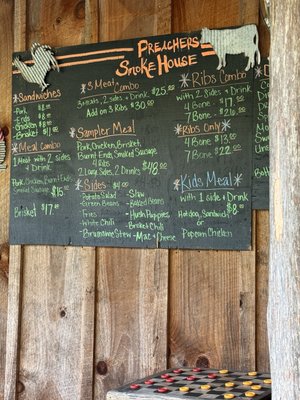 Preachers
Smoke House
*Sandwiches
Pork $8.00
Ends
Chicken $8.00
Brisket $11.00
*Meal*
1 Meat w/ 2 Sides
+ Drink
Smoked Sausage $15.00
Brisket $17.00
3 Meat Combo
3 meats, 2 sides + Drink $25.00
Add on 3 Ribs $30.00
*Sampler Meal*
Pork, Chicken, Brisket
Burnt Ends, Smoked Sausage
4 Ribs
2 Large Sides, 2 Drinks $48.00
*Sides $4.00
-Potato Salad
-Green Beans
-Fries
-White Chili
-Brunswick Stew
-Slaw
-Baked Beans
-Hush Puppies
-Brisket Chili
-Mac + Cheese
*Ribs Combo*
with 2 sides + Drink
4 Bone - $17.00
7 Bone - $26.00
*Ribs Only*
4 Bone - $13.00
7 Bone - $22.00
*Kids Meal*
with 1 side + Drink
$8.00
Hotdog, Sandwich
or
Popcorn Chicken